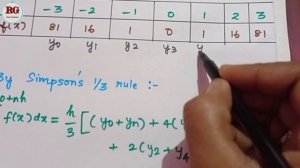 RG
-3 -2 -1 0 1 2 3
f(x) 81 16 1 0 1 16 81
y0 y1 y2 y3 y
By Simpson's 1/3 rule :-
0+nh
f(x)dx = h/3 [(y0+yn) + 4(y
+ 2(y2+y4